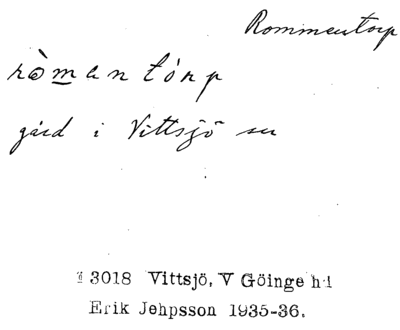 Rommentorp
ròmantórp
gård i Vittsjö sn
3018 Vittsjö, V Göinge hd
Erik Jehpsson 1935-36.